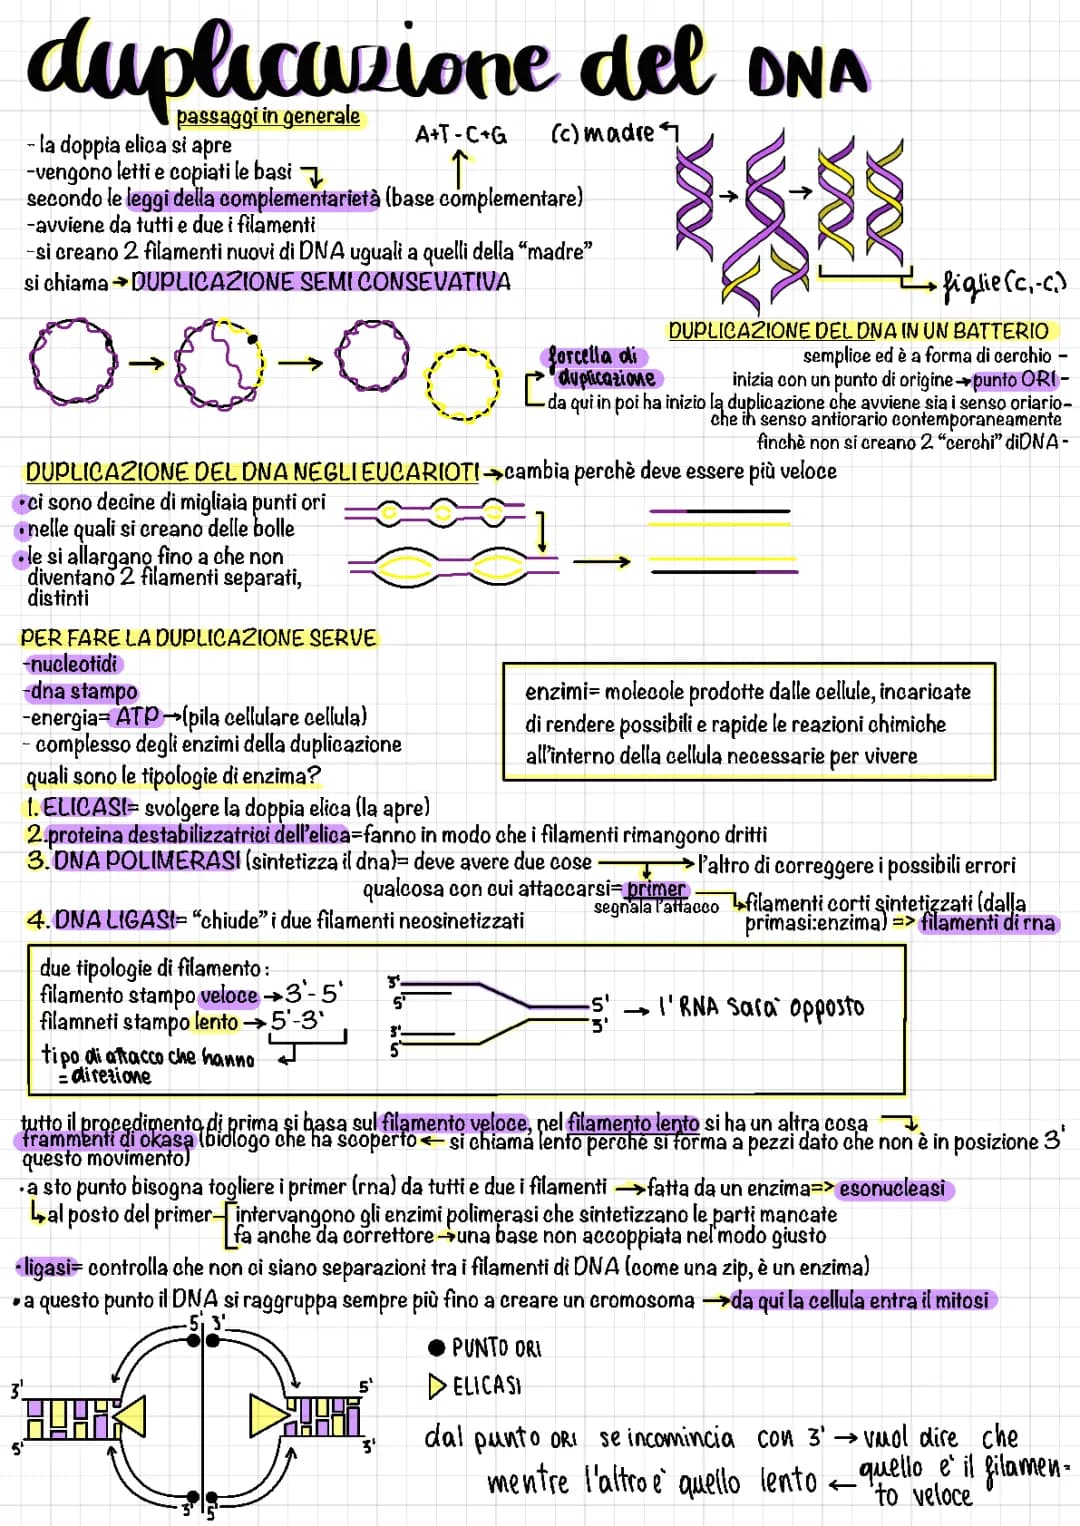 duplicazione del DNA
passaggi in generale
- la doppia elica si apre
-vengono letti e copiati le basi
secondo le leggi della complementarietà (base complementare)
A+T - C+G
-avviene da tutti e due i filamenti
-si creano 2 filamenti nuovi di DNA uguali a quelli della “madre”
si chiama → DUPLICAZIONE SEMI CONSEVATIVA
(c) madre
figlie (c,-c,)
DUPLICAZIONE DEL DNA IN UN BATTERIO
semplice ed è a forma di cerchio -
inizia con un punto di origine → punto ORI -
forcella di
duplicazione
da qui in poi ha inizio la duplicazione che avviene sia i senso oriario-
che in senso antiorario contemporaneamente
finchè non si creano 2 “cerchi” di DNA -
DUPLICAZIONE DEL DNA NEGLI EUCARIOTI → cambia perchè deve essere più veloce
•ci sono decine di migliaia punti ori
•nelle quali si creano delle bolle
•le si allargano fino a che non
diventano 2 filamenti separati,
distinti
PER FARE LA DUPLICAZIONE SERVE
-nucleotidi
-dna stampo
-energia= ATP → (pila cellulare cellula)
- complesso degli enzimi della duplicazione
quali sono le tipologie di enzima?
enzimi= molecole prodotte dalle cellule, incaricate
di rendere possibili e rapide le reazioni chimiche
all'interno della cellula necessarie per vivere
1. ELICASI= svolgere la doppia elica (la apre)
2.proteina destabilizzatrici dell'elica=fanno in modo che i filamenti rimangono dritti
3. DNA POLIMERASI (sintetizza il dna)= deve avere due cose → l'altro di correggere i possibili errori
qualcosa con cui attaccarsi= primer
segnala l'attacco
filamenti corti sintetizzati (dalla
primasi:enzima) => filamenti di rna
4. DNA LIGASI= “chiude” i due filamenti neosinetizzati
due tipologie di filamento:
filamento stampo veloce → 3'-5'
filamneti stampo lento → 5'-3'
tipo di attacco che hanno
= direzione
3'
5'
3'
5'
5'
3'
→ l'RNA sarà opposto
tutto il procedimento di prima si basa sul filamento veloce, nel filamento lento si ha un altra cosa
frammenti di okasa (biologo che ha scoperto ← si chiama lento perchè si forma a pezzi dato che non è in posizione 3'
questo movimento)
•a sto punto bisogna togliere i primer (rna) da tutti e due i filamenti → fatta da un enzima=> esonucleasi
al posto del primer- intervangono gli enzimi polimerasi che sintetizzano le parti mancate
fa anche da correttore → una base non accoppiata nel modo giusto
•ligasi= controlla che non ci siano separazioni tra i filamenti di DNA (come una zip, è un enzima)
•a questo punto il DNA si raggruppa sempre più fino a creare un cromosoma → da qui la cellula entra il mitosi
5' 3'
3'
5'
5'
3'
3' 5'
PUNTO ORI
ELICASI
dal punto ORI se incomincia con 3' → vuol dire che
quello e' il filamen-
to veloce
mentre l'altro e' quello lento ←